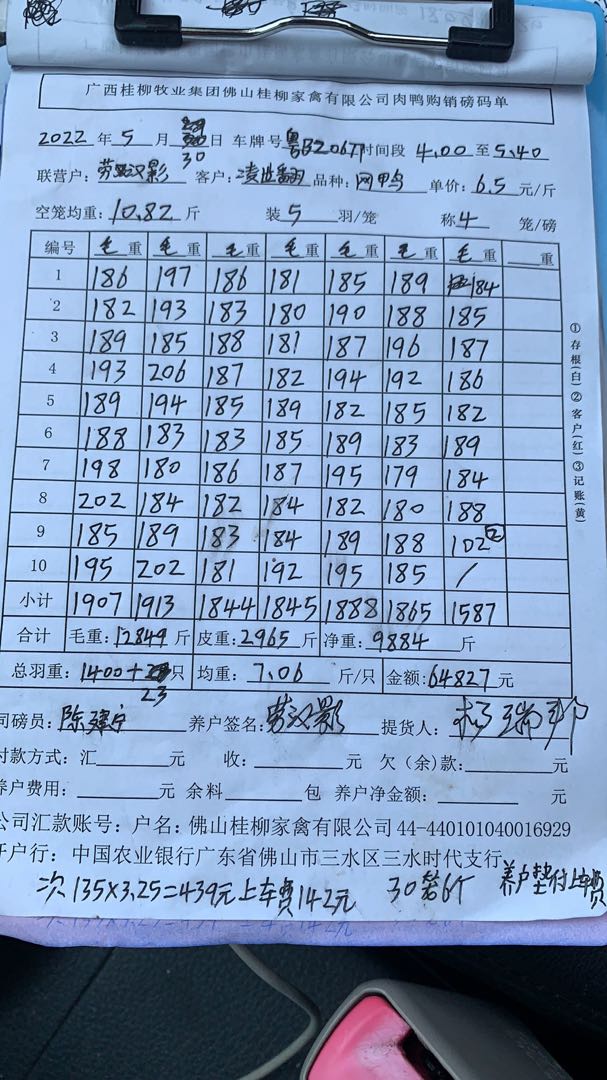 广西桂柳牧业集团佛山桂柳家禽有限公司肉鸭购销磅码单
2022年5月30日 车牌号 时间段 4.00至5.40
联营户: 客户: 品种: 网鸭 单价: 6.5元/斤
空笼均重: 10.82斤 装5羽/笼 称4笼/磅
编号 毛重 毛重 毛重 毛重 毛重 毛重 毛重 重
1 186 197 186 181 185 189 184
2 182 193 183 180 190 188 185
3 189 185 188 181 187 196 187
4 193 206 187 182 194 192 186
5 189 194 185 189 182 185 182
6 188 183 183 185 189 183 189
7 198 180 186 187 195 179 184
8 202 184 182 184 182 180 188
9 185 189 183 184 189 188 102②
10 195 202 181 192 195 185 /
小计 1907 1913 1844 1845 1888 1865 1587
合计 毛重: 12849斤 皮重: 2965斤 净重: 9884斤
总羽重: 1400+23只 均重: 7.06斤/只 金额: 64827元
司磅员: 养户签名: 提货人:
付款方式: 汇 元 收: 元 欠(余)款: 元
养户费用: 元 余料 包 养户净金额: 元
公司汇款账号: 户名: 佛山桂柳家禽有限公司 44-440101040016929
开户行: 中国农业银行广东省佛山市三水区三水时代支行
次135×3.25=439元上车费142元 30笼6个 养户垫付上车费
①存根(白)②客户(红)③记账(黄)